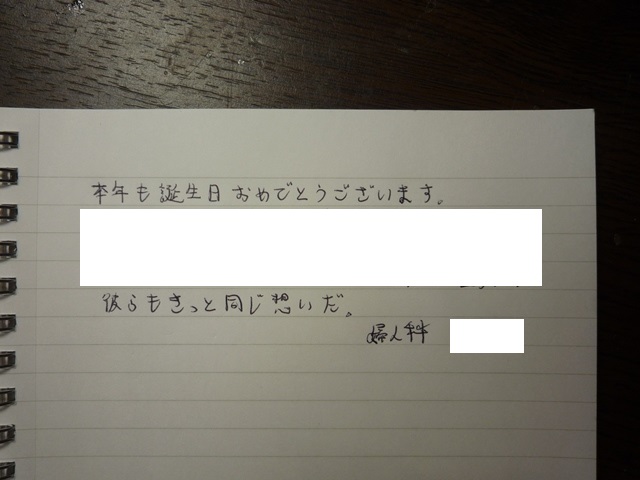 本年も誕生日おめでとうございます。
彼らもきっと同じ想いだ。
婦人科